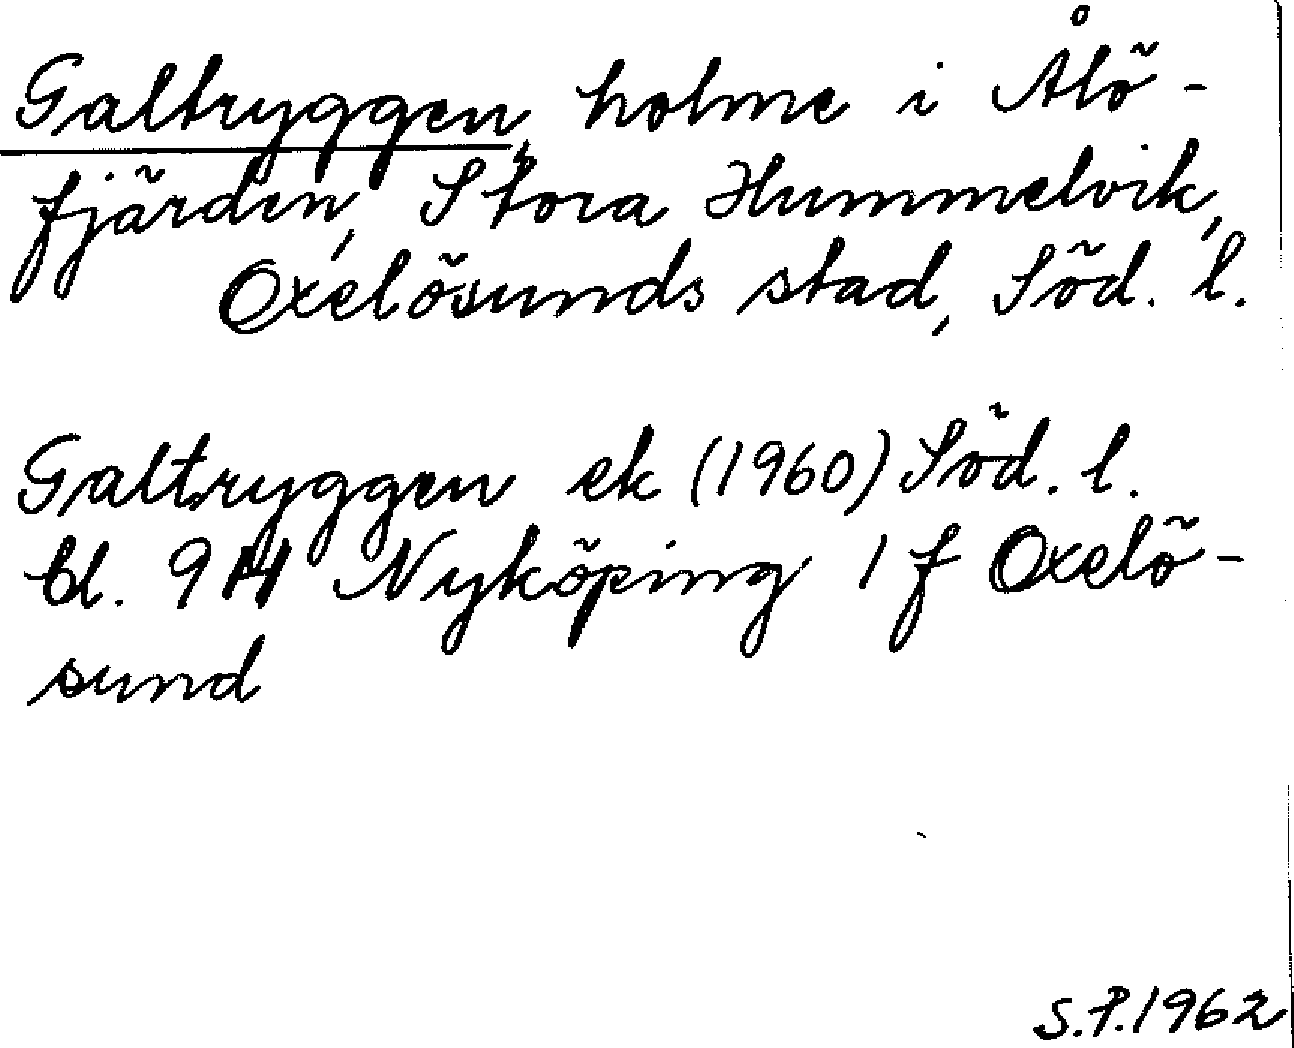 Galtryggen, holme i Ålö-
fjärden, Stora Hummelvik,
Oxelösunds stad, Söd. l.
Galtryggen ek (1960) Söd. l.
bl. 9 H Nyköping 1 f Oxelö-
sund
S.P. 1962